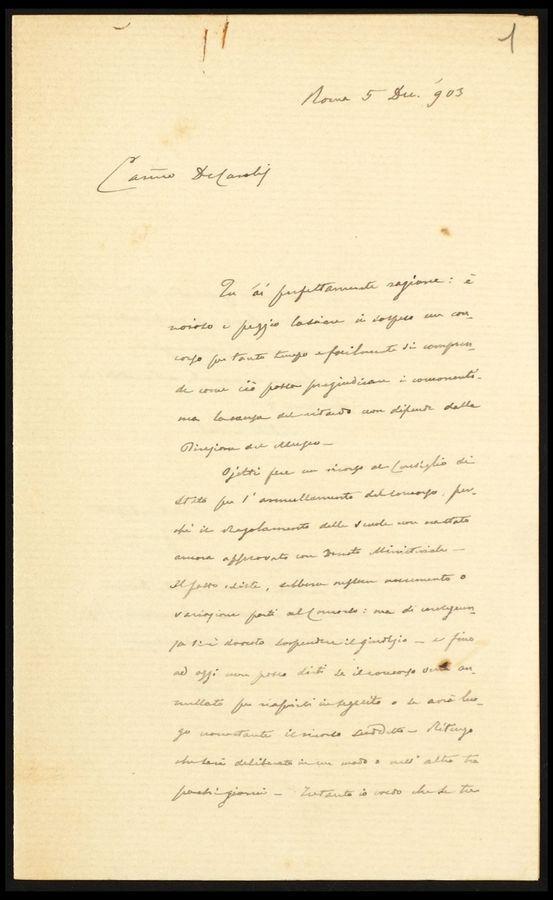 1
Roma 5 Dec. '903
Carissimo De Carolis
Tu ài perfettamente ragione: è
noioso e peggio lasciare in sospeso un con-
corso per tanto tempo e facilmente si compren-
de come ciò possa pregiudicare i concorrenti.
ma la causa del ritardo non dipende dalla
Direzione del Museo —
Ojetti fece un ricorso al Consiglio di
Stato per l'annullamento del concorso, per-
chè il Regolamento delle scuole non era stato
ancora approvato con Decreto Ministeriale —
Il fatto esiste, sebbene nessun nocumento o
variazione porti al Concorso: ma di conseguen-
za si è dovuto sospendere il giudizio — e fino
ad oggi non posso dirti se il concorso verrà an-
nullato per riaprirsi in seguito o se avrà luo-
go nonostante il ricorso suddetto — Ritengo
che sarà deliberato in un modo o nell'altro tra
pochi giorni — Intanto io credo che se tu